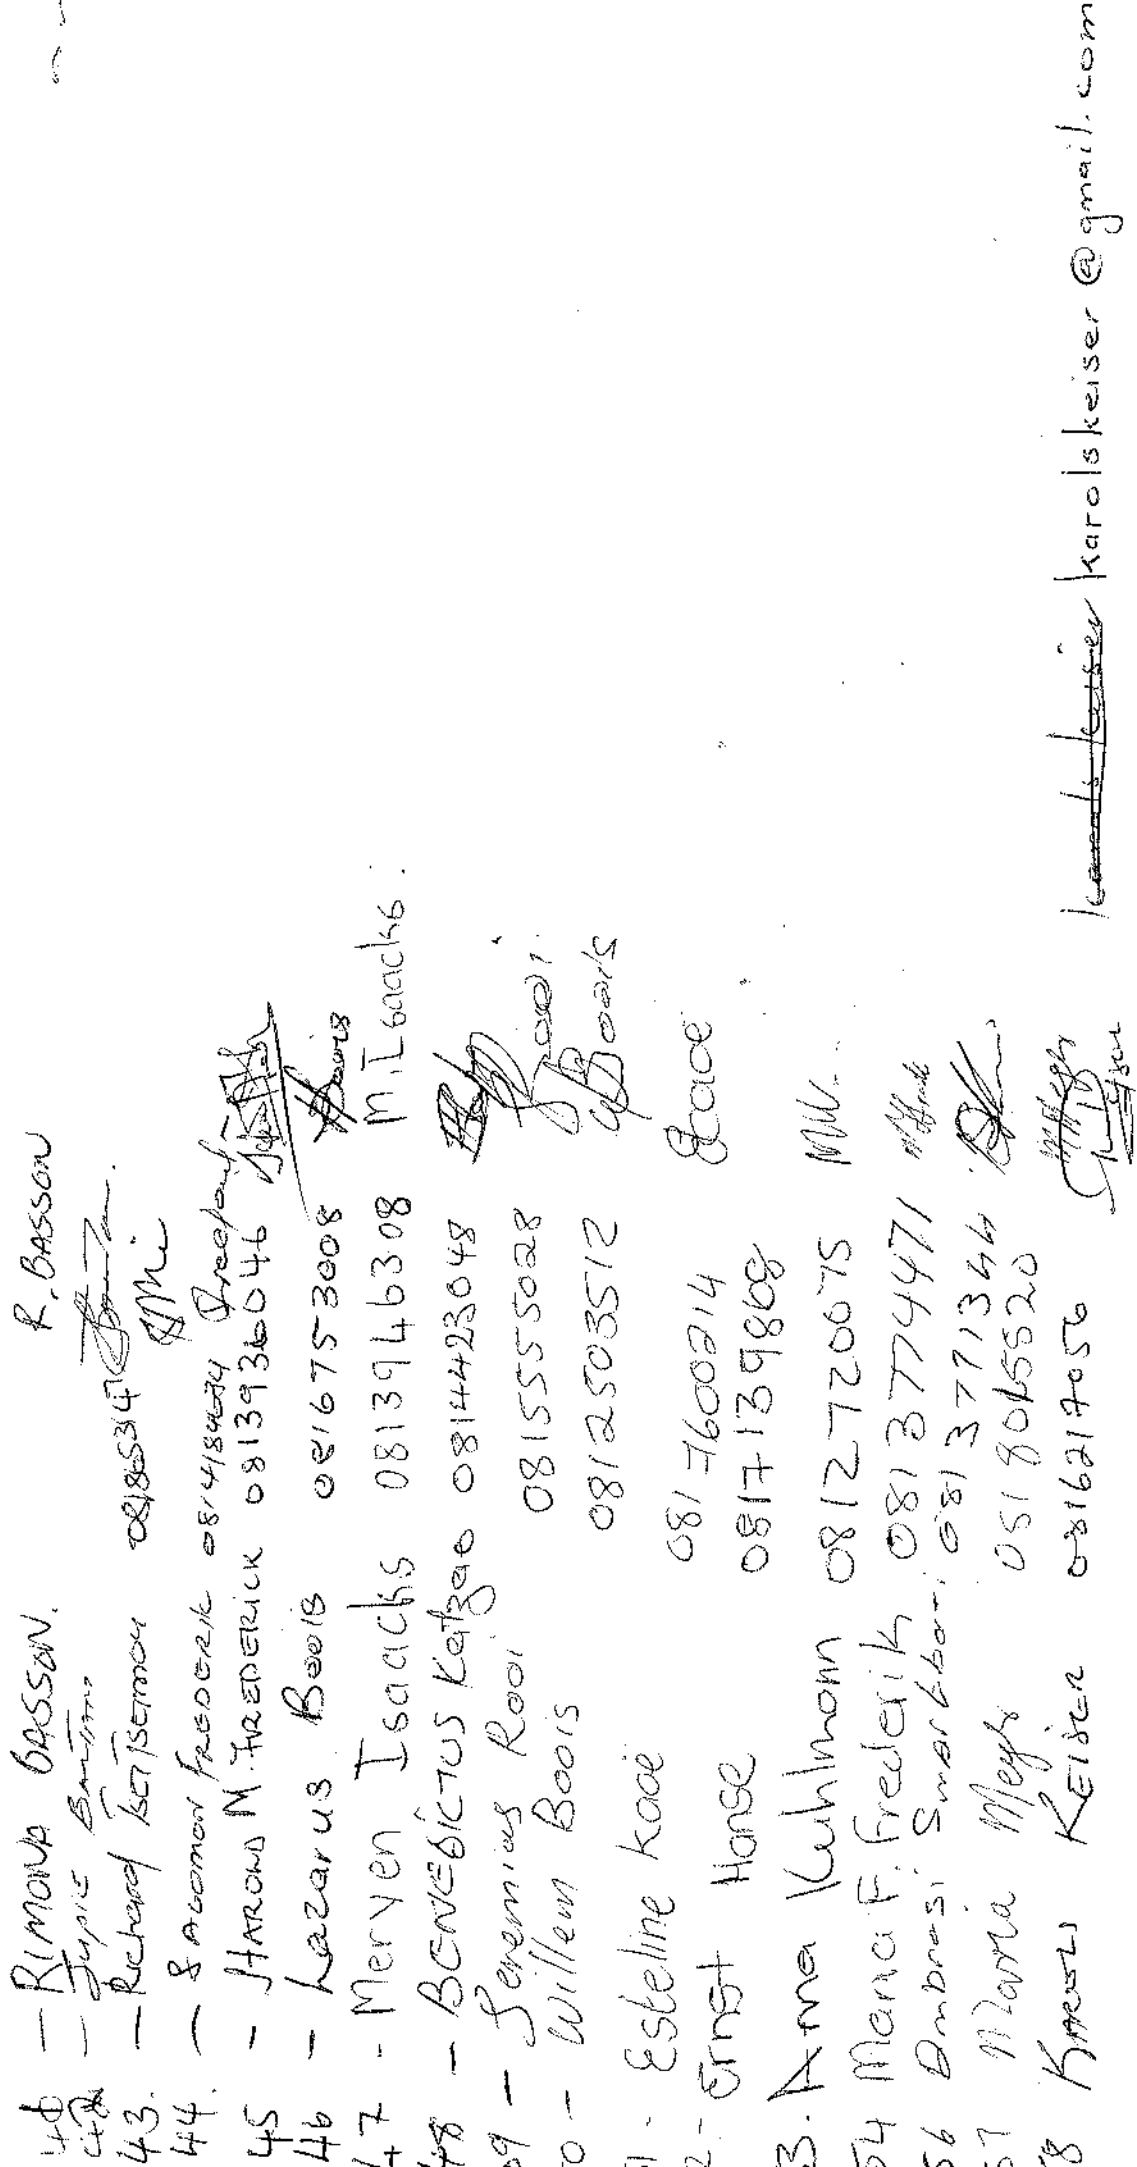 41 - RIMONA BASSON. R. BASSON
42 - Jupie
43. - Richard
44. - SALOMON FREDERIK 0814184674
45 - HAROLD M. FREDERICK 0813936046
46 - Lazarus Boois 0816753008 Boois
47 - Meryen Isaacks 0813946308 M. Isaacks.
48 - BENEDICTUS Katzao 0814423048
09 - Jeremias Rooi 0815555028 J Rooi.
0 - Willem Boois 0812503512 W Boois
1 - Esteline kaoe 081 7600214 Ekaoe
2 - Ernst Hanse 0817139868
3. Anna Kuhlmann 0812720075
54 Maria F. Frederik 0813774471
56 081 3771344
57 Maria 0818015520
58 KAROLS KEISER 0816217056 karolskeiser@gmail.com